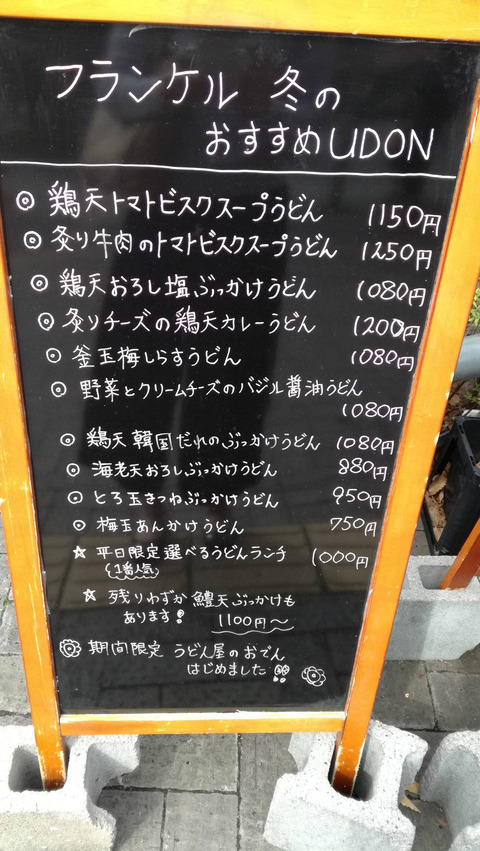 フランケル 冬の
おすすめUDON
◎ 鶏天トマトビスクスープうどん 1150円
◎ 炙り牛肉のトマトビスクスープうどん 1250円
◎ 鶏天おろし塩ぶっかけうどん 1080円
◎ 炙りチーズの鶏天カレーうどん 1200円
◎ 釜玉梅しらすうどん 1080円
◎ 野菜とクリームチーズのバジル醤油うどん
1080円
◎ 鶏天韓国だれのぶっかけうどん 1080円
◎ 海老天おろしぶっかけうどん 880円
◎ とろ玉きつねぶっかけうどん 950円
◎ 梅玉あんかけうどん 750円
☆ 平日限定選べるうどんランチ 1000円
1番人気
☆ 残りわずか 鱧天ぶっかけも
あります! 1100円〜
期間限定 うどん屋のおでん
はじめました!!